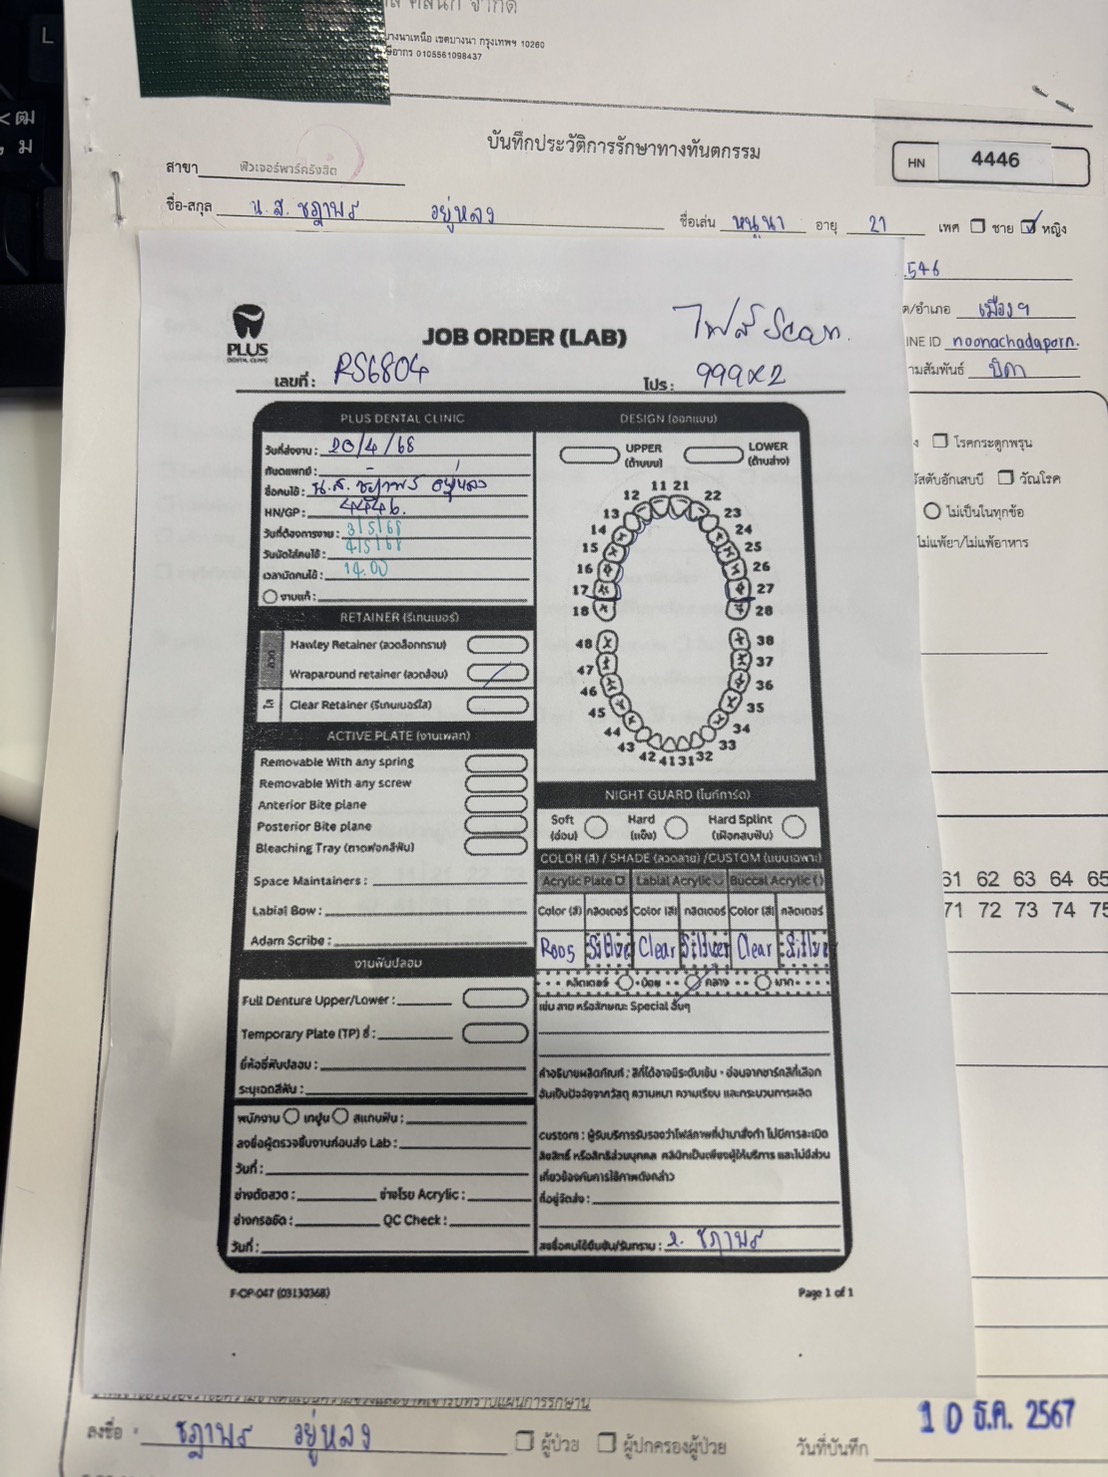 L
<
ฒ
ม
บางนาเหนือ เขตบางนา กรุงเทพฯ 10260
0105561098437
บันทึกประวัติการรักษาทางทันตกรรม
HN 4446
สาขา ฟิวเจอร์พาร์ครังสิต
ชื่อ-สกุล น.ส. ชฎาพร อยู่หลง ชื่อเล่น หนูนา อายุ 21 เพศ ชาย หญิง
546
ต/อำเภอ เมืองฯ
INE ID noonachadaporn.
ามสัมพันธ์ บิดา
โรคกระดูกพรุน
รัสตับอักเสบบี วัณโรค
ไม่เป็นในทุกข้อ
ไม่แพ้ยา/ไม่แพ้อาหาร
61 62 63 64 65
71 72 73 74 75
PLUS
DENTAL CLINIC
JOB ORDER (LAB) ไฟล์ Scan.
เลขที่ : RS6804 โปร : 999x2
PLUS DENTAL CLINIC
วันที่ส่งงาน : 20/4/68
ทันตแพทย์ : -
ชื่อคนไข้ : น.ส. ชฎาพร อยู่หลง
HN/GP : 4446.
วันที่ต้องการงาน : 3/5/68
วันนัดใส่คนไข้ : 4/5/68
เวลานัดคนไข้ : 14.00
งานแก้ :
RETAINER (รีเทนเนอร์)
ลวด
Hawley Retainer (ลวดล็อกกราม)
Wraparound retainer (ลวดล้อม)
ใส
Clear Retainer (รีเทนเนอร์ใส)
ACTIVE PLATE (งานเพลท)
Removable With any spring
Removable With any screw
Anterior Bite plane
Posterior Bite plane
Bleaching Tray (ถาดฟอกสีฟัน)
Space Maintainers :
Labial Bow :
Adam Scribe :
งานฟันปลอม
Full Denture Upper/Lower :
Temporary Plate (TP) ซี่ :
ยี่ห้อซี่ฟันปลอม :
ระบุเฉดสีฟัน :
พนักงาน เทปูน สแกนฟัน :
ลงชื่อผู้ตรวจชิ้นงานก่อนส่ง Lab :
วันที่ :
ช่างดัดลวด : ช่างโรย Acrylic :
ช่างกรอขัด : QC Check :
วันที่ :
DESIGN (ออกแบบ)
UPPER
(ด้านบน)
LOWER
(ด้านล่าง)
11 21
12 22
13 23
14 24
15 25
16 26
17 27
18 28
48 38
47 37
46 36
45 35
44 34
43 33
42 41 31 32
NIGHT GUARD (ไนท์การ์ด)
Soft
(อ่อน)
Hard
(แข็ง)
Hard Splint
(เฝือกสบฟัน)
COLOR (สี) / SHADE (ลวดลาย) /CUSTOM (แบบเฉพาะ)
Acrylic Plate Labial Acrylic Buccal Acrylic
Color (สี) กลิตเตอร์ Color (สี) กลิตเตอร์ Color (สี) กลิตเตอร์
R005 Clear Clear
กลิตเตอร์ น้อย กลาง มาก
เช่น ลาย หรือลักษณะ Special อื่นๆ
คำอธิบายผลิตภัณฑ์ : สีที่ได้อาจมีระดับเข้ม - อ่อนจากชาร์ทสีที่เลือก
อันเป็นปัจจัยจากวัสดุ ความหนา ความเรียบ และกระบวนการผลิต
custom : ผู้รับบริการรับรองว่าไฟล์ภาพที่นำมาสั่งทำ ไม่มีการละเมิด
ลิขสิทธิ์ หรือสิทธิส่วนบุคคล คลินิกเป็นเพียงผู้ให้บริการ และไม่มีส่วน
เกี่ยวข้องกับการใช้ภาพดังกล่าว
ที่อยู่จัดส่ง :
ลงชื่อคนไข้ยืนยัน/รับทราบ : ชฎาพร
F-OP-047 (03130368) Page 1 of 1
ลงชื่อ ชฎาพร อยู่หลง ผู้ป่วย ผู้ปกครองผู้ป่วย วันที่บันทึก 10 ธ.ค. 2567